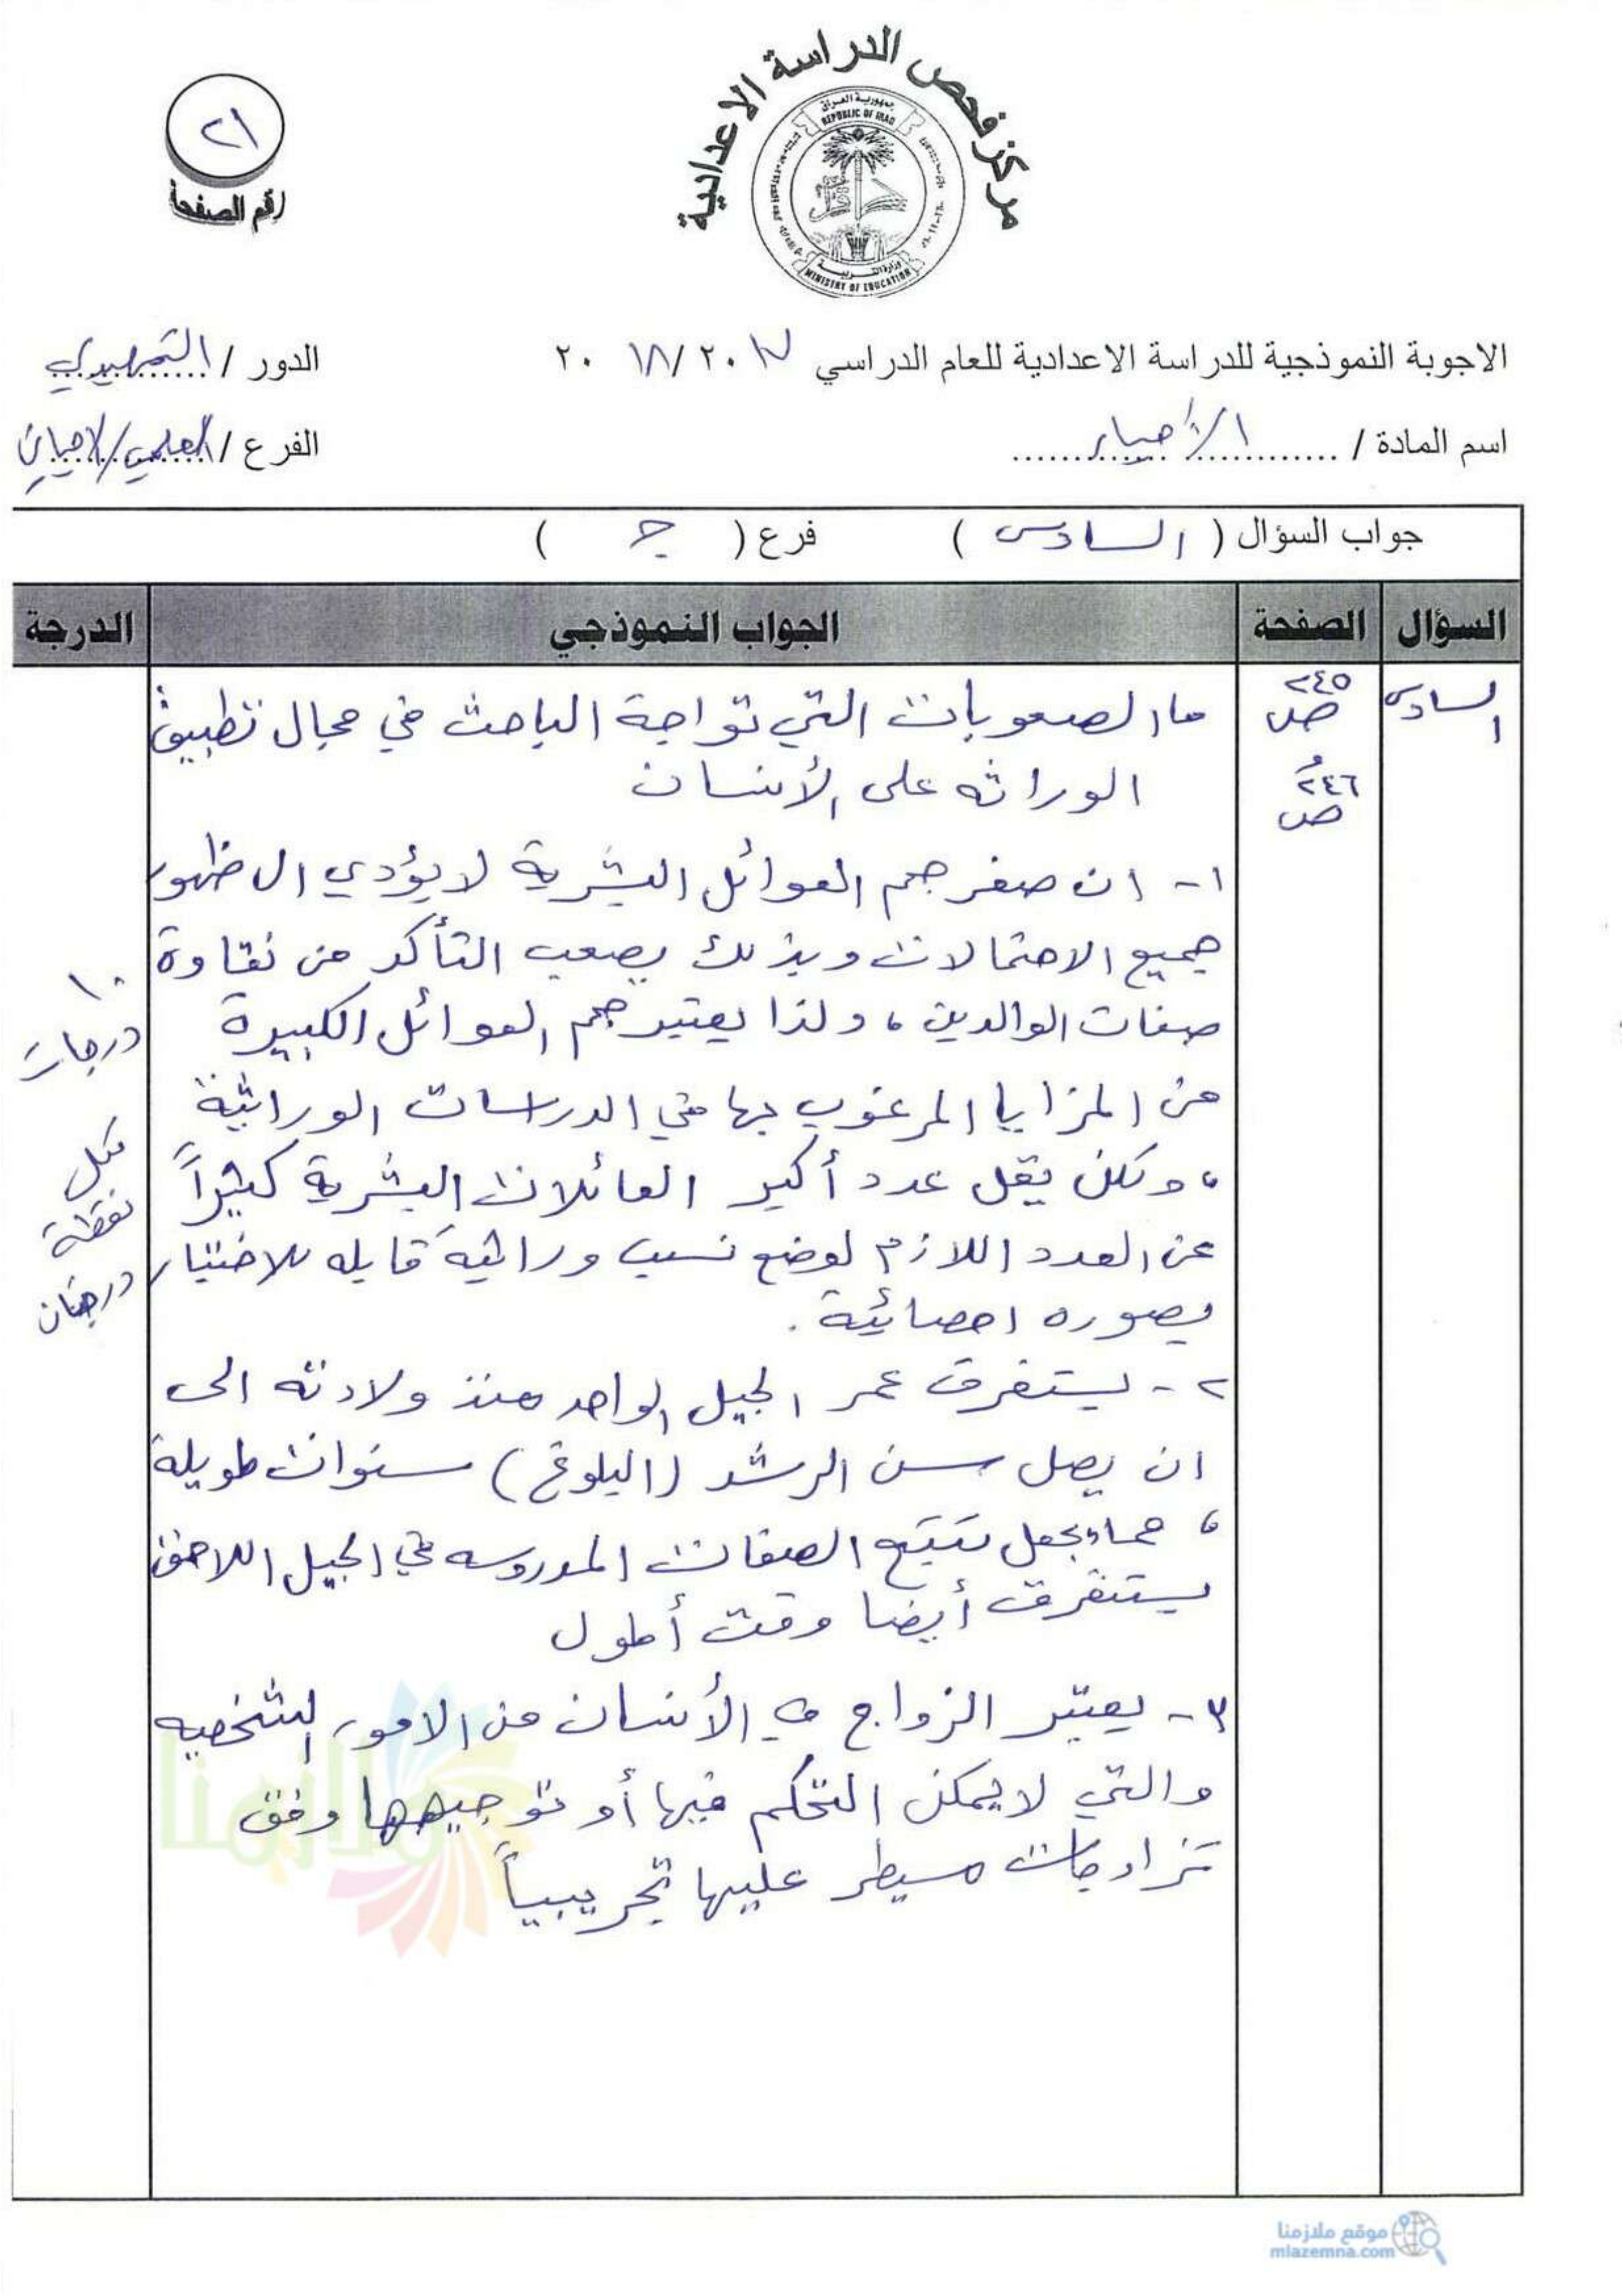 مركز فحص الدراسة الاعدادية
جمهورية العراق
REPUBLIC OF IRAQ
وزارة التربية
MINISTRY OF EDUCATION
٢١
رقم الصفحة
الاجوبة النموذجية للدراسة الاعدادية للعام الدراسي ٢٠١٧ / ٢٠١٨
الدور / التمهيدي
اسم المادة / الأحياء
الفرع / العلمي/الاحيائي
جواب السؤال ( السادس ) فرع ( ج )
السؤال الصفحة الجواب النموذجي الدرجة
السادس
٢٤٥
ص
و
٢٤٦
ص
ما الصعوبات التي تواجة الباحث في مجال تطبيق
الوراثه على الأنسان
١- ان صغر حجم العوائل البشرية لا يؤدي الى ظهور
جميع الاحتمالات وبذلك يصعب التأكد من نقاوة
صفات الوالدين ، ولذا يعتبر حجم العوائل الكبيرة
من المزايا المرغوب بها في الدراسات الوراثية
، ولكن يقل عدد أكبر العائلات البشرية كثيراً
عن العدد اللازم لوضع نسب وراثية قابله للاختبار
بصوره احصائية .
٢- يستغرق عمر الجيل الواحد منذ ولادته الى
ان يصل سن الرشد (البلوغ) سنوات طويلة
، مما يجعل تتبع الصفات المدروسه في الجيل اللاحق
يستغرق أيضا وقت أطول
٣- يعتبر الزواج في الأنسان من الامور الشخصيه
والتي لا يمكن التحكم فيها أو توجيهها وفق
تزاوجات مسيطر عليها تجريبياً
١٠
درجات
لكل
نقطة
درجتان
ملازمنا
موقع ملازمنا
mlazemna.com